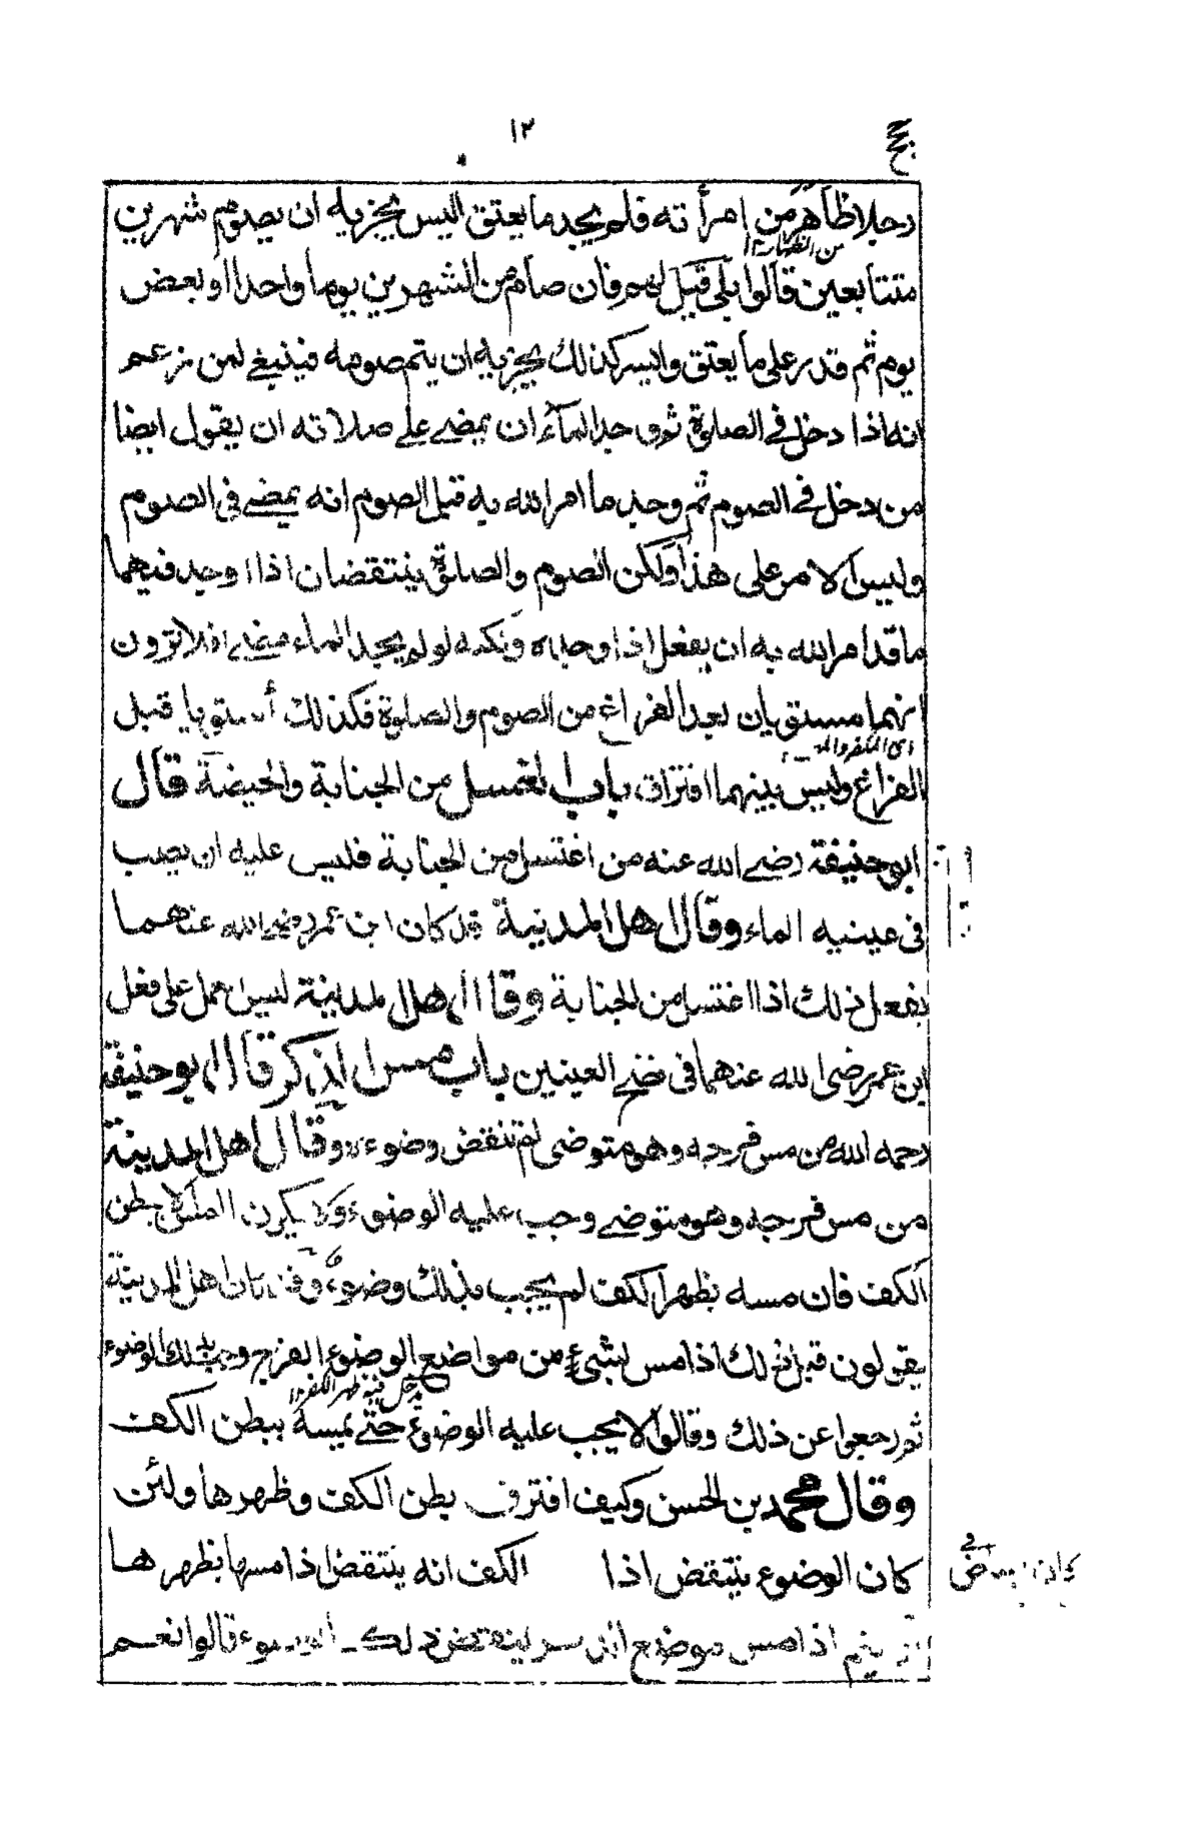 ١٢
رجلا ظاهر من امرأته فلم يجد ما يعتق اليس يجزيه ان يصوم شهرين
من الظهار ١٢
متتابعين قالوا بلى قيل لهم فان صام من الشهرين يوما واحدا او بعض
يوم ثم قدر على ما يعتق واليس كذلك يجزيه ان يتم صومه فينبغي لمن زعم
انه اذا دخل في الصلوة ثم وجد الماء ان يمضي على صلاته ان يقول ايضا
من دخل في الصوم ثم وجد ما امر الله به قبل الصوم انه يمضي في الصوم
وليس الامر على هذا ولكن الصوم والصلوة ينتقضان اذا وجد فيهما
ما قد امر الله به ان يفعل اذا وجده ولكنه لو لم يجد الماء مضى افلا ترون
انهما مستويان بعد الفراغ من الصوم والصلوة فكذلك استويا قبل
الفراغ وليس بينهما افتراق باب الغسل من الجنابة والحيضة قال
ابو حنيفة رضي الله عنه من اغتسل من الجنابة فليس عليه ان يصب
في عينيه الماء وقال اهل المدينة قد كان ابن عمر رضي الله عنهما
يفعل ذلك اذا اغتسل من الجنابة وقال اهل المدينة ليس عمل على فعل
ابن عمر رضى الله عنهما في نضح العينين باب مس الذكر قال ابو حنيفة
رحمه الله من مس فرجه وهو متوضى لم تنقض وضوءه وقال اهل المدينة
من مس فرجه وهو متوضي وجب عليه الوضوء ولا يكون المس الا ببطن
الكف فان مسه بظهر الكف لم يجب بذلك وضوء وقد كان اهل المدينة
يقولون قبل ذلك اذا مس بشيء من مواضع الوضوء الفرج وجب بذلك الوضوء
يدخل فيه ظهر الكف ١٢
ثم رجعوا عن ذلك وقالوا لا يجب عليه الوضوء حتى يمسه ببطن الكف
وقال محمد بن الحسن وكيف افترق بطن الكف وظهرها ولئن
كان الوضوء ينتقض اذا الكف انه ينتقض اذا مسها بظهرها
اذا مس موضع لينتقض ذلك الوضوء قالوا نعم